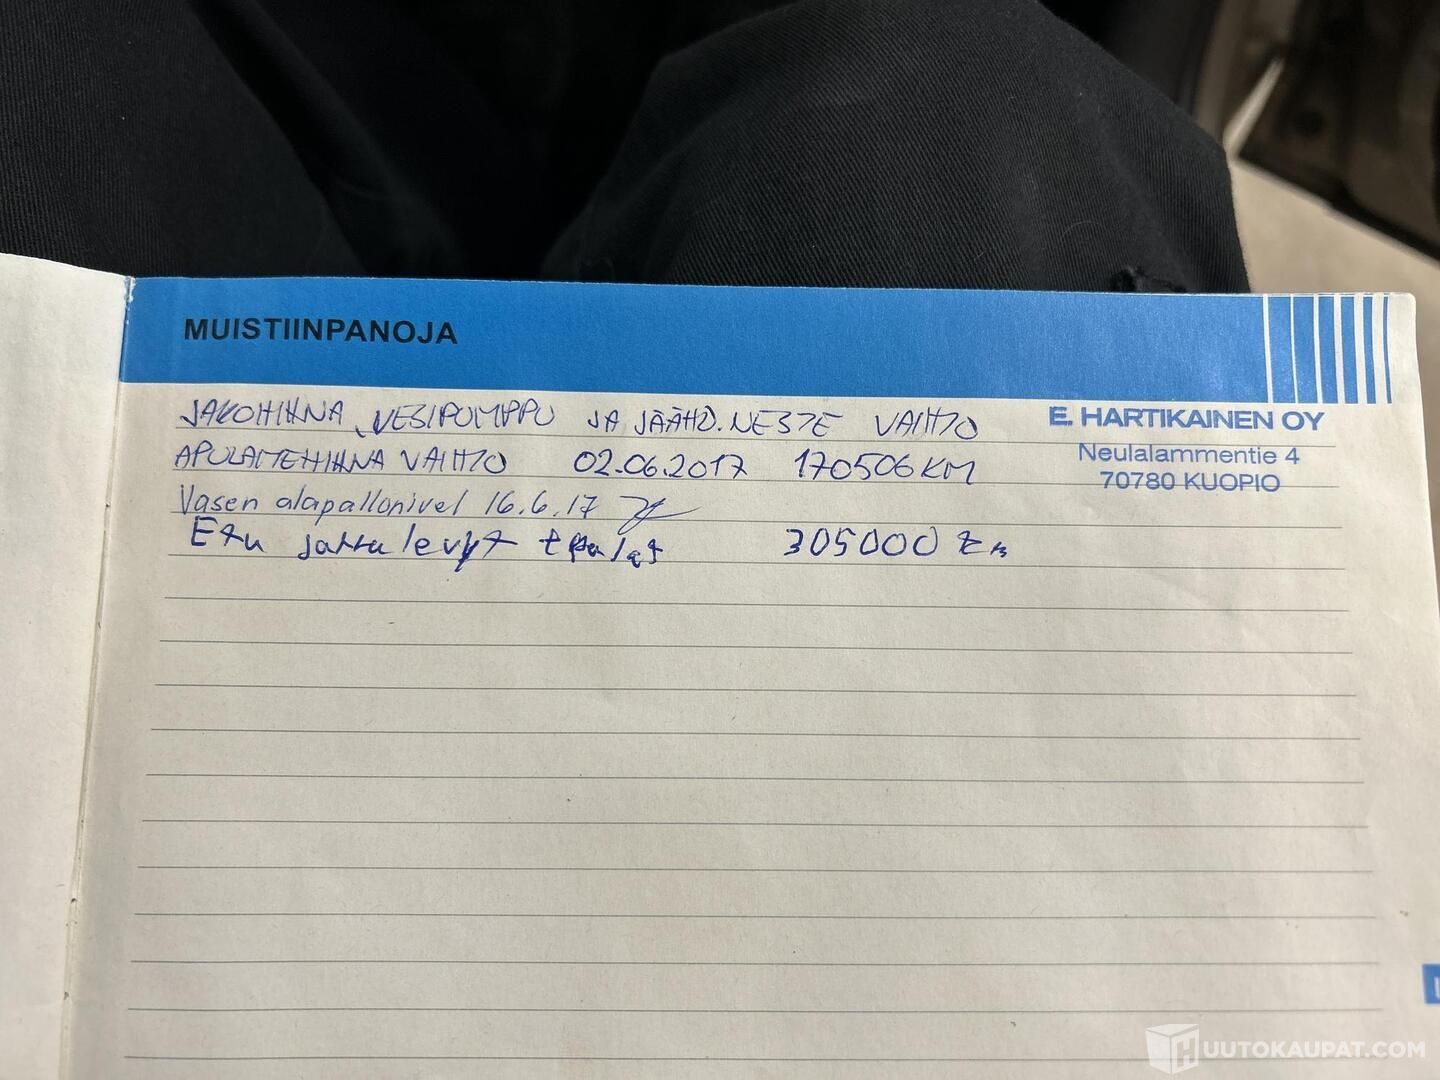 MUISTIINPANOJA
JAKOHIHNA, VESIPUMPPU JA JÄÄHD.NESTE VAIHTO
APULAITEHIHNA VAIHTO 02.06.2017 170506KM
E. HARTIKAINEN OY
Neulalammentie 4
70780 KUOPIO
Vasen alapallonivel 16.6.17
Etu jarrulevyt + palat 305000 km
HUUTOKAUPAT.COM